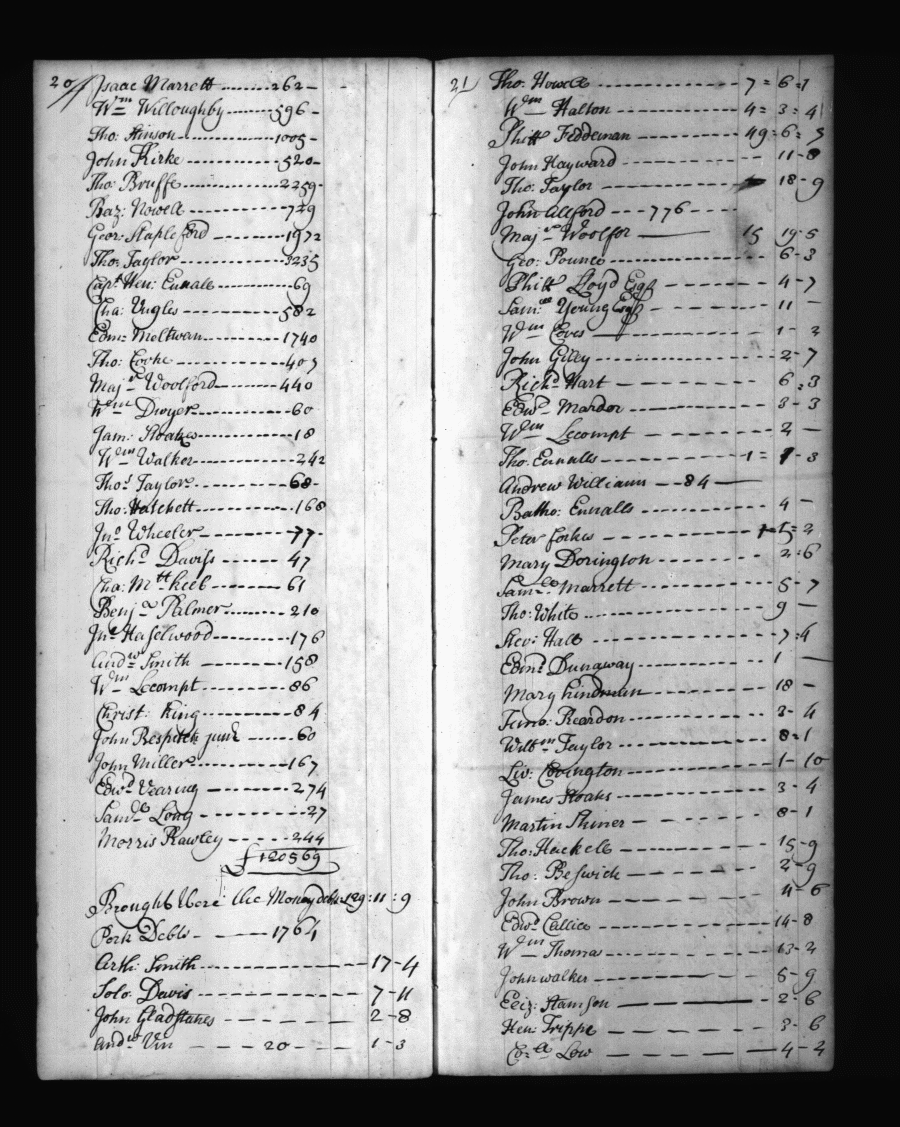 20 Isaac Marrett 262
Wm Willoughby 596
Tho: Hinson 1005
John Kirke 520
Tho: Bruffe 2259
Baz: Nowell 729
Geor: Stapleford 1972
Tho: Taylor 3235
Capt Hen: Ennals 69
Cha: Ungles 582
Edm: Moltwan 1740
Tho: Cooke 407
Majr Woolford 440
Wm Dwyer 60
Jam: Stoakes 18
Wm Walker 242
Tho: Taylor 68
Tho: Hatchett 168
Jno Wheeler 77
Richd Daviss 47
Cha: Mtt keeb 61
Benjn Palmer 210
Jno Haselwood 176
Andw Smith 158
Wm Lecompt 86
Christ: King 84
John Respitch junr 60
John Miller 167
Edwd Vearing 274
Saml Long 27
Morris Rawley 244
£120569
Brought Here the Money debts 129:11:9
Pork Debts 1764
Arth: Smith 17-4
Solo: Davis 7-11
John Gladstanes 2-8
Andw Vin 20 1-3
21 Tho: Howell 7=6=1
Wm Halton 4=3=4
Phill Feddeman 49=6=5
John Hayward 11-8
Tho: Taylor 18-9
John Allford 776
Majr Woolfor 15 19-5
Geo: Pounce 6-3
Phill Lloyd Esqr 4-7
Samll Young Esqr 11 -
Wm Eves 1-3
John Gilly 2-7
Richd Hart 6=3
Edwd Mardor 3-3
Wm Lecompt 2 -
Tho: Ennalls 1=1-3
Andrew Williams 84
Batho: Ennalls 4 -
Peter forkes 15=2
Mary Dorington 2:6
Samll Marrett 5-7
Tho: White 9 -
Rev: Hall 7:4
Edmd Dunaway 1 -
Mary hindman 18 -
Timo: Reardon 3-4
Willm Taylor 8-1
Liv: Covington 1-10
James Stoaks 3-4
Martin Skiner 8-1
Tho: Hackell 15-9
Tho: Beswick 2-9
John Brown 4-6
Edwd Callice 14-8
Wm Thomas 13-2
John walker 5-9
Eliz: Hamson 2-6
Hen: Trippe 3-6
Coll Low 4-2